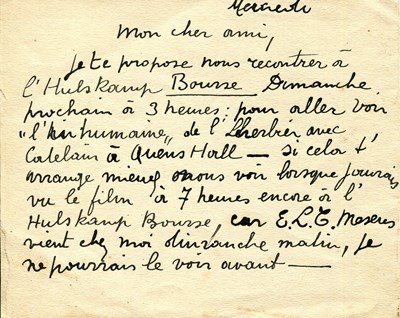 Mercredi
Mon cher ami,
Je te propose nous recontrer à
l'Hulskamp Bourse Dimanche
prochain à 3 heures: pour aller voir
"l'Inhumaine" de l'Lherbier avec
Catelain à Queens Hall — si cela t'
arrange mieux nous voir lorsque j'aurais
vu le film à 7 heures encore à l'
Hulskamp Bourse, car E.L.T. Mesens
vient chez moi dimanche matin, je
ne pourrais le voir avant —